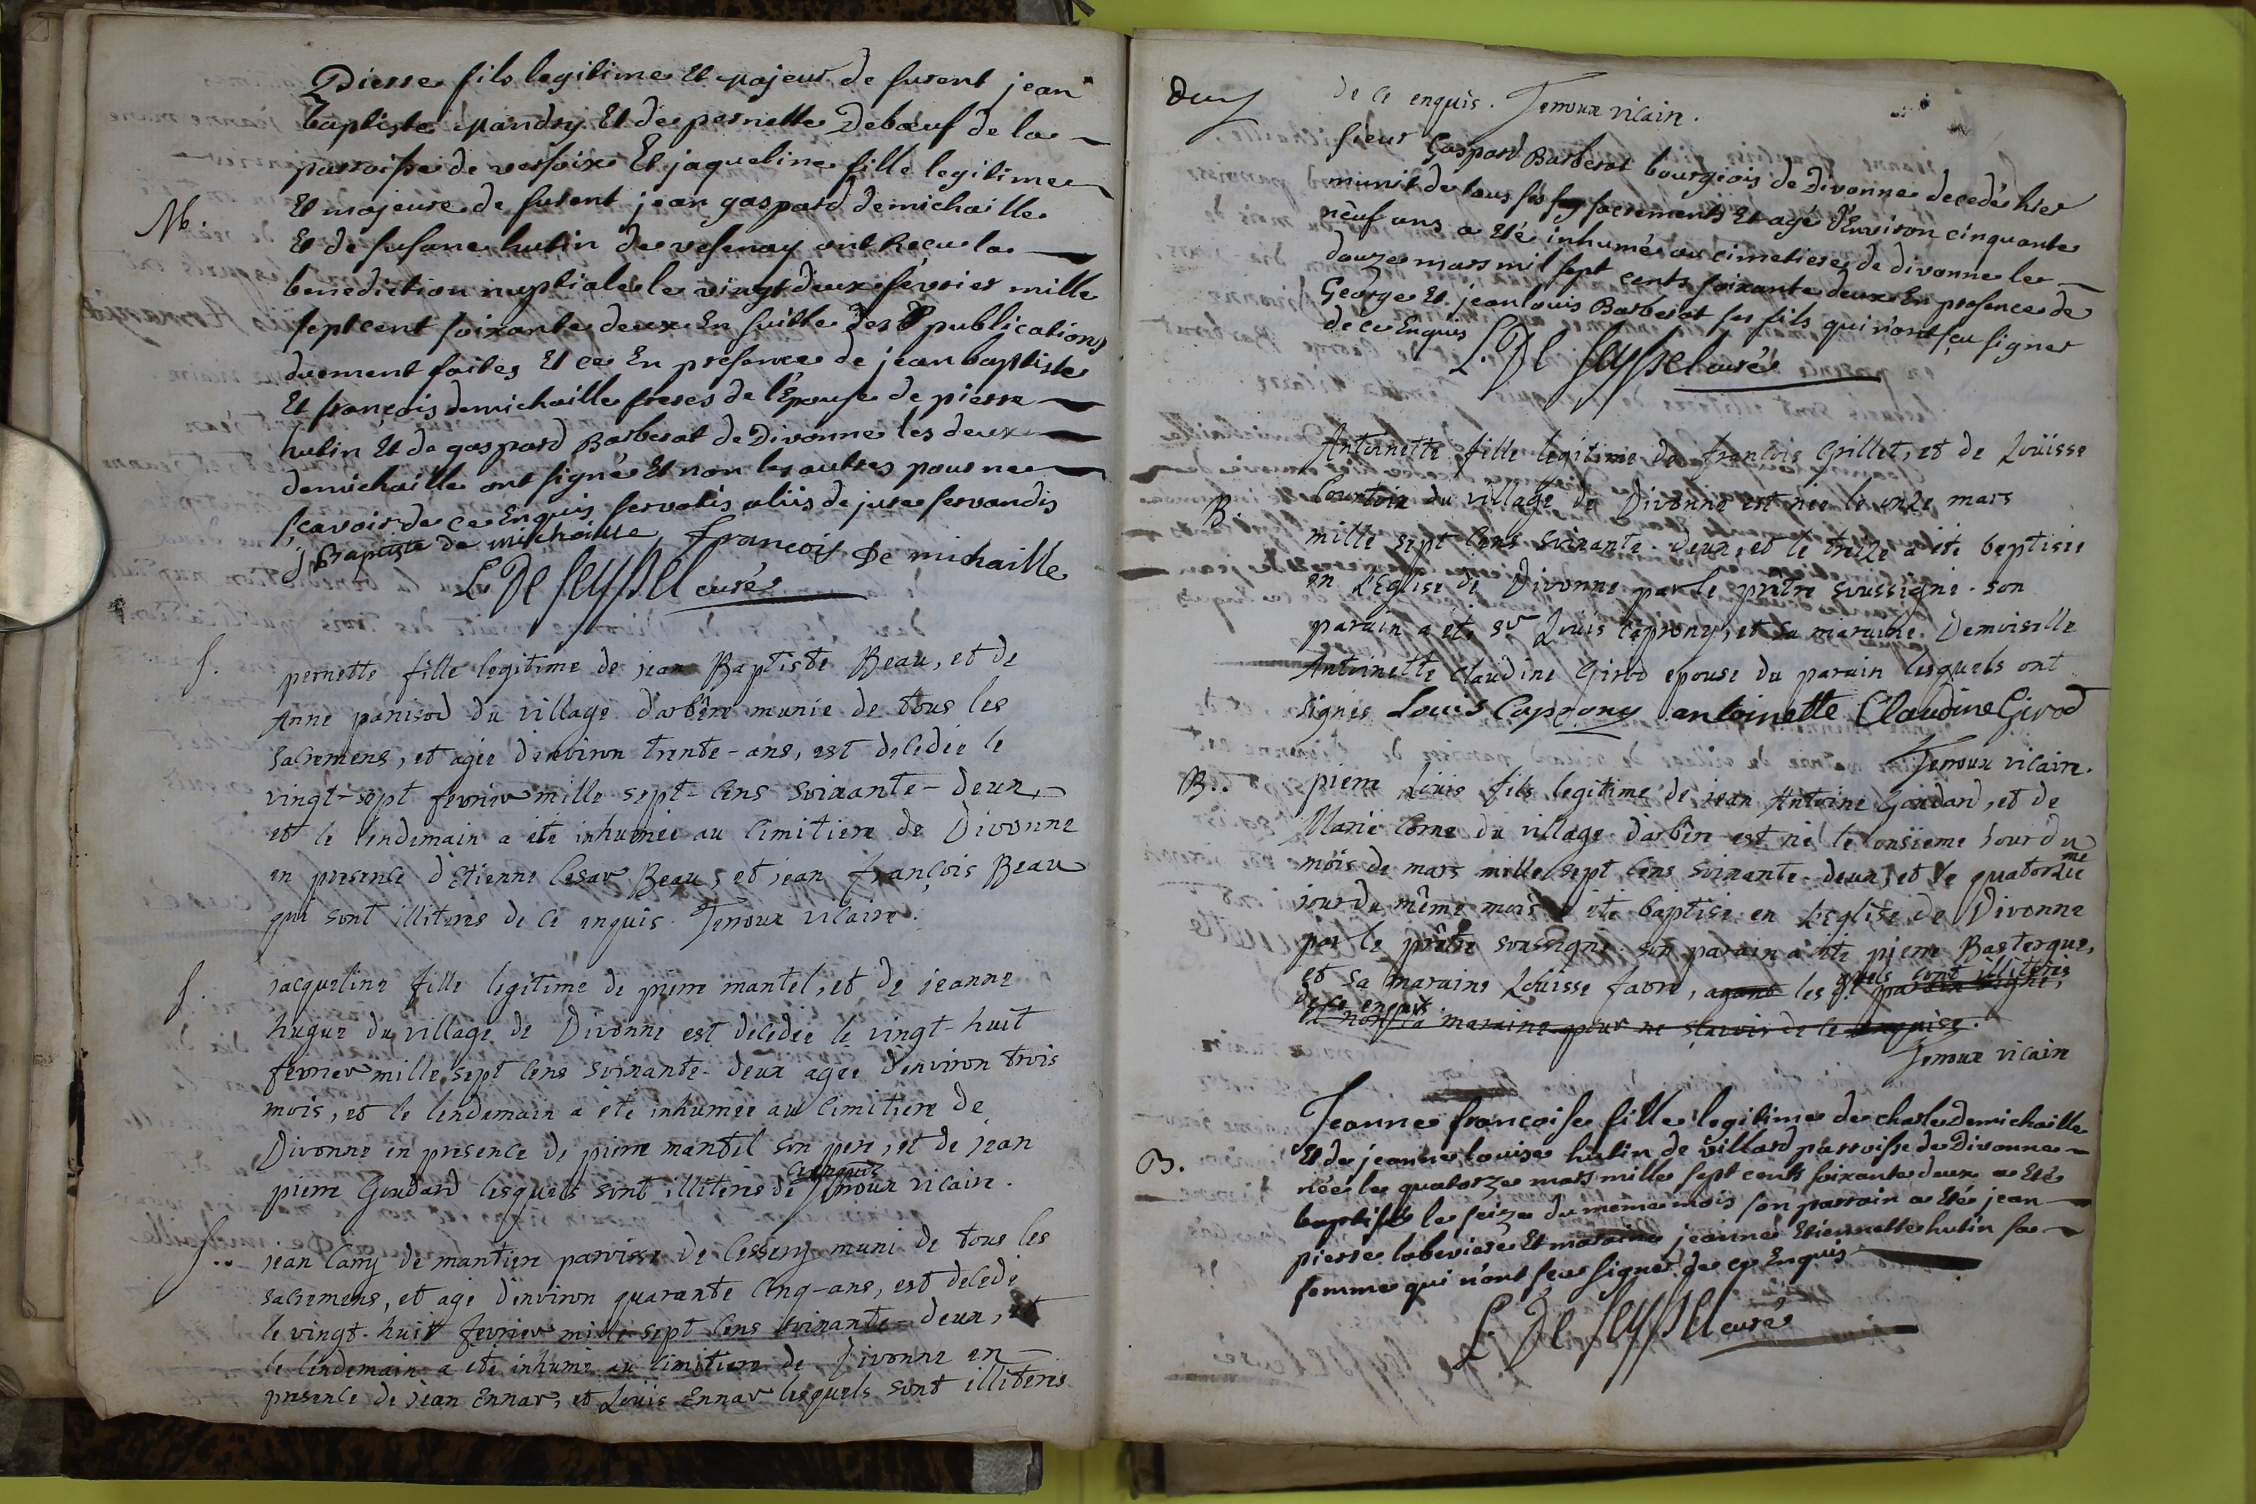 Pierre fils legitime Et Majeur de furent jean
baptiste Mandry Et de pernette Debœuf de la
parroisse de versoix Et jaqueline fille legitime
M.
Et majeure de furent jean gaspard demichaille
Et de susane hutin de vesenay ont Recu la
benediction nuptiale le vingt deux février mille
sept cent soixante deux En suitte des 3 publications
duement faites Et ce En presence de jean baptiste
Et françois demichaille freres de l'Epouse de pierre
hutin Et de gaspard Barberat de Divonne les deux
demichaille ont signé Et non les autres pour ne
sçavoir de ce Enquis servatis aliis de jure servandis
j Baptiste de michaille françois De michaille
L. De Seyssel curé
S.
pernette fille legitime de jean Baptiste Beau, et de
Anne panisod du village d'arbêre munie de tous les
sacremens, et agée d'environ trente-ans, est decedée le
vingt-sept fevrier mille sept-cens soixante-deux,
et le lendemain a été inhumée au cimitiere de Divonne
en presence d'Etienne Cesar Beau, et jean françois Beau
qui sont illiteres de ce enquis. Jenoux vicaire.
S.
jacqueline fille legitime de pierre mantel, et de jeanne
hugue du village de Divonne est decedée le vingt-huit
fevrier mille sept cens soixante-deux agée d'environ trois
mois, et le lendemain a été inhumée au cimitiere de
Divonne en presence de pierre mantel son pere, et de jean
pierre Goudard lesquels sont illiteris de ce enquis Jenoux vicaire.
S..
jean Carry de mantiere parroisse de Lessery muni de tous les
sacremens, et agé d'environ quarante cinq-ans, est decedé
le vingt-huit fevrier mille sept cens soixante-deux, et
le lendemain a été inhumé au cimitiere de Divonne en
presence de jean Ennar, et Louis Ennar lesquels sont illiteris
de ce enquis. Jenoux vicair.
sieur Gaspard Barberat bourgeois de Divonne decedé hier
munit de tous ses sacrements Et agé d'Environ cinquante
neuf ans a Eté inhumé au cimetiere de divonne le
douze mars mil sept cents soixante deux En presence de
George Et jean louis Barberat ses fils qui n'ont sçu signer
de ce Enquis L. De Seyssel curé
Antoinette fille legitime de françois Grillet, et de Loüisse
B.
Courtois du village de Divonne est née le onze mars
mille sept cens soixante-deux, et le treize a été baptisée
en l'Eglise de Divonne par le prêtre soussigné. son
parain a été Sr Louis Caprony, et sa maraine Demoiselle
Antoinette Claudine Girod epouse du parain lesquels ont
signés Louis Caprony antoinette Claudine Girod
Jenoux vicaire.
B..
pierre Loüis fils legitime de jean Antoine Goudard, et de
Marie Corne du village d'arbêre est né le onsieme jour du
mois de mars mille sept cens soixante-deux, et le quatorzieme
jour du même mois a été baptisé en l'Eglise de Divonne
par le prêtre soussigné. son parain a été pierre Basterque,
et sa maraine Loüisse favre, ayant lesquels sont illiteris
de ce enquis
et non la maraine pour ne sçavoir de ce enquise.
Jenoux vicair
Jeanne françoise fille legitime de charle demichaille
B.
Et de jeanne louise hutin de villard parroisse de Divonne
née le quatorze mars mille sept cents soixante deux a Eté
baptisée le seize du meme mois son parrain a Eté jean
pierre labeviere Et maraine jeanne Etiennette hutin sa
femme qui n'ont sceu signer de ce Enquis
L. De Seyssel curé